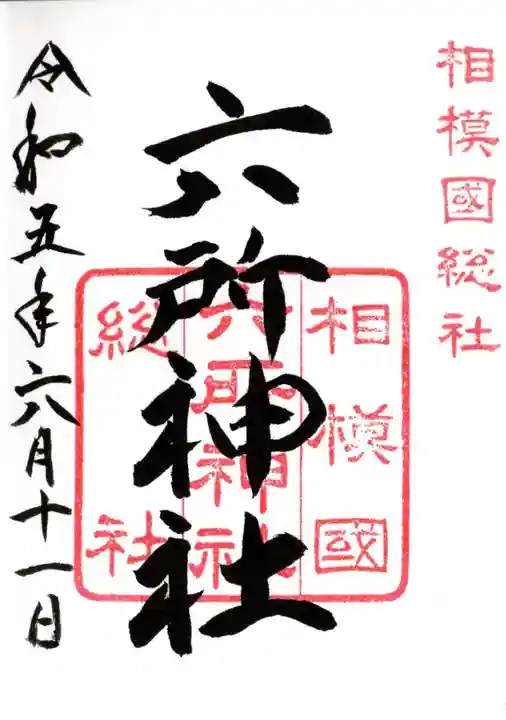 相模國総社
六所神社
相模國
六所神社
総社
令和五年六月十一日